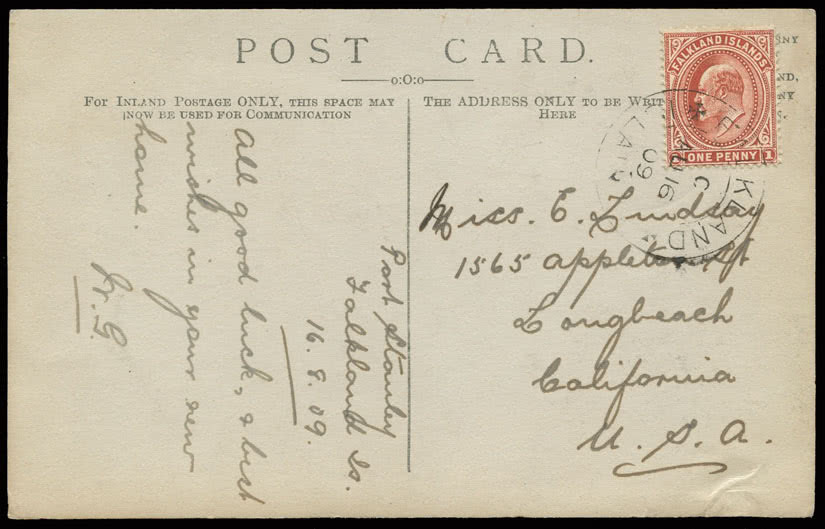 POST CARD.
o:O:o
For Inland Postage ONLY, this space may
now be used for Communication
The ADDRESS ONLY to be Writ
Here
NY
ND,
NY
S.
FALKLAND ISLANDS
ONE PENNY 1
FALKLAND
C
AU 16
09
Port Stanley
Falkland Is.
16. 8. 09.
All good luck, & best
wishes in your new
home.
Miss. E. Lindsay
1565 Appleton St
Longbeach
California
U. S. A.